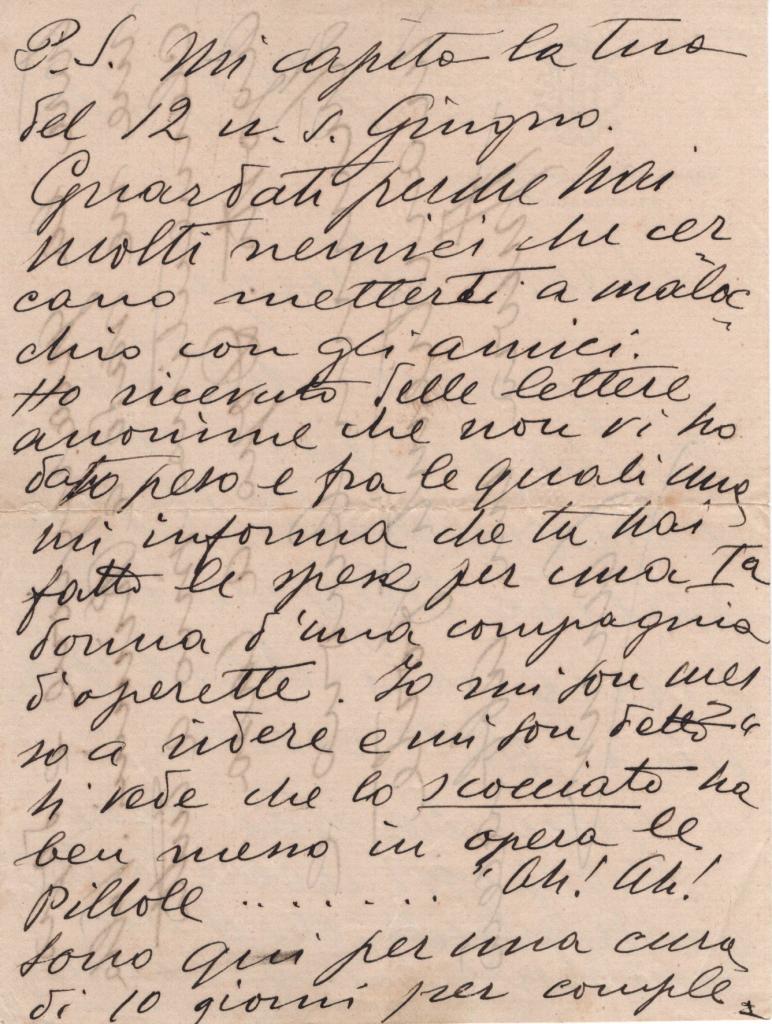 P.S. Mi capita la tua
del 12 u. s. Giugno.
Guardati perche hai
molti nemici che cer
cano metterti a maloc
chio con gli amici.
Ho ricevuto delle lettere
anonime che non vi ho
dato peso e fra le quali una
mi informa che tu hai
fatto le spese per una Ia
donna d'una compagnia
d'operette. Io mi son mes
so a ridere e mi son detto "
si vede che lo scocciato ha
ben messo in opera le
Pillole ........" Ah! Ah!
Sono qui per una cura
di 10 giorni per comple=